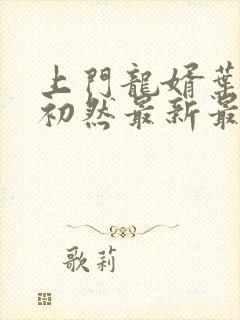 上門龍婿葉
初然最新最
歌莉